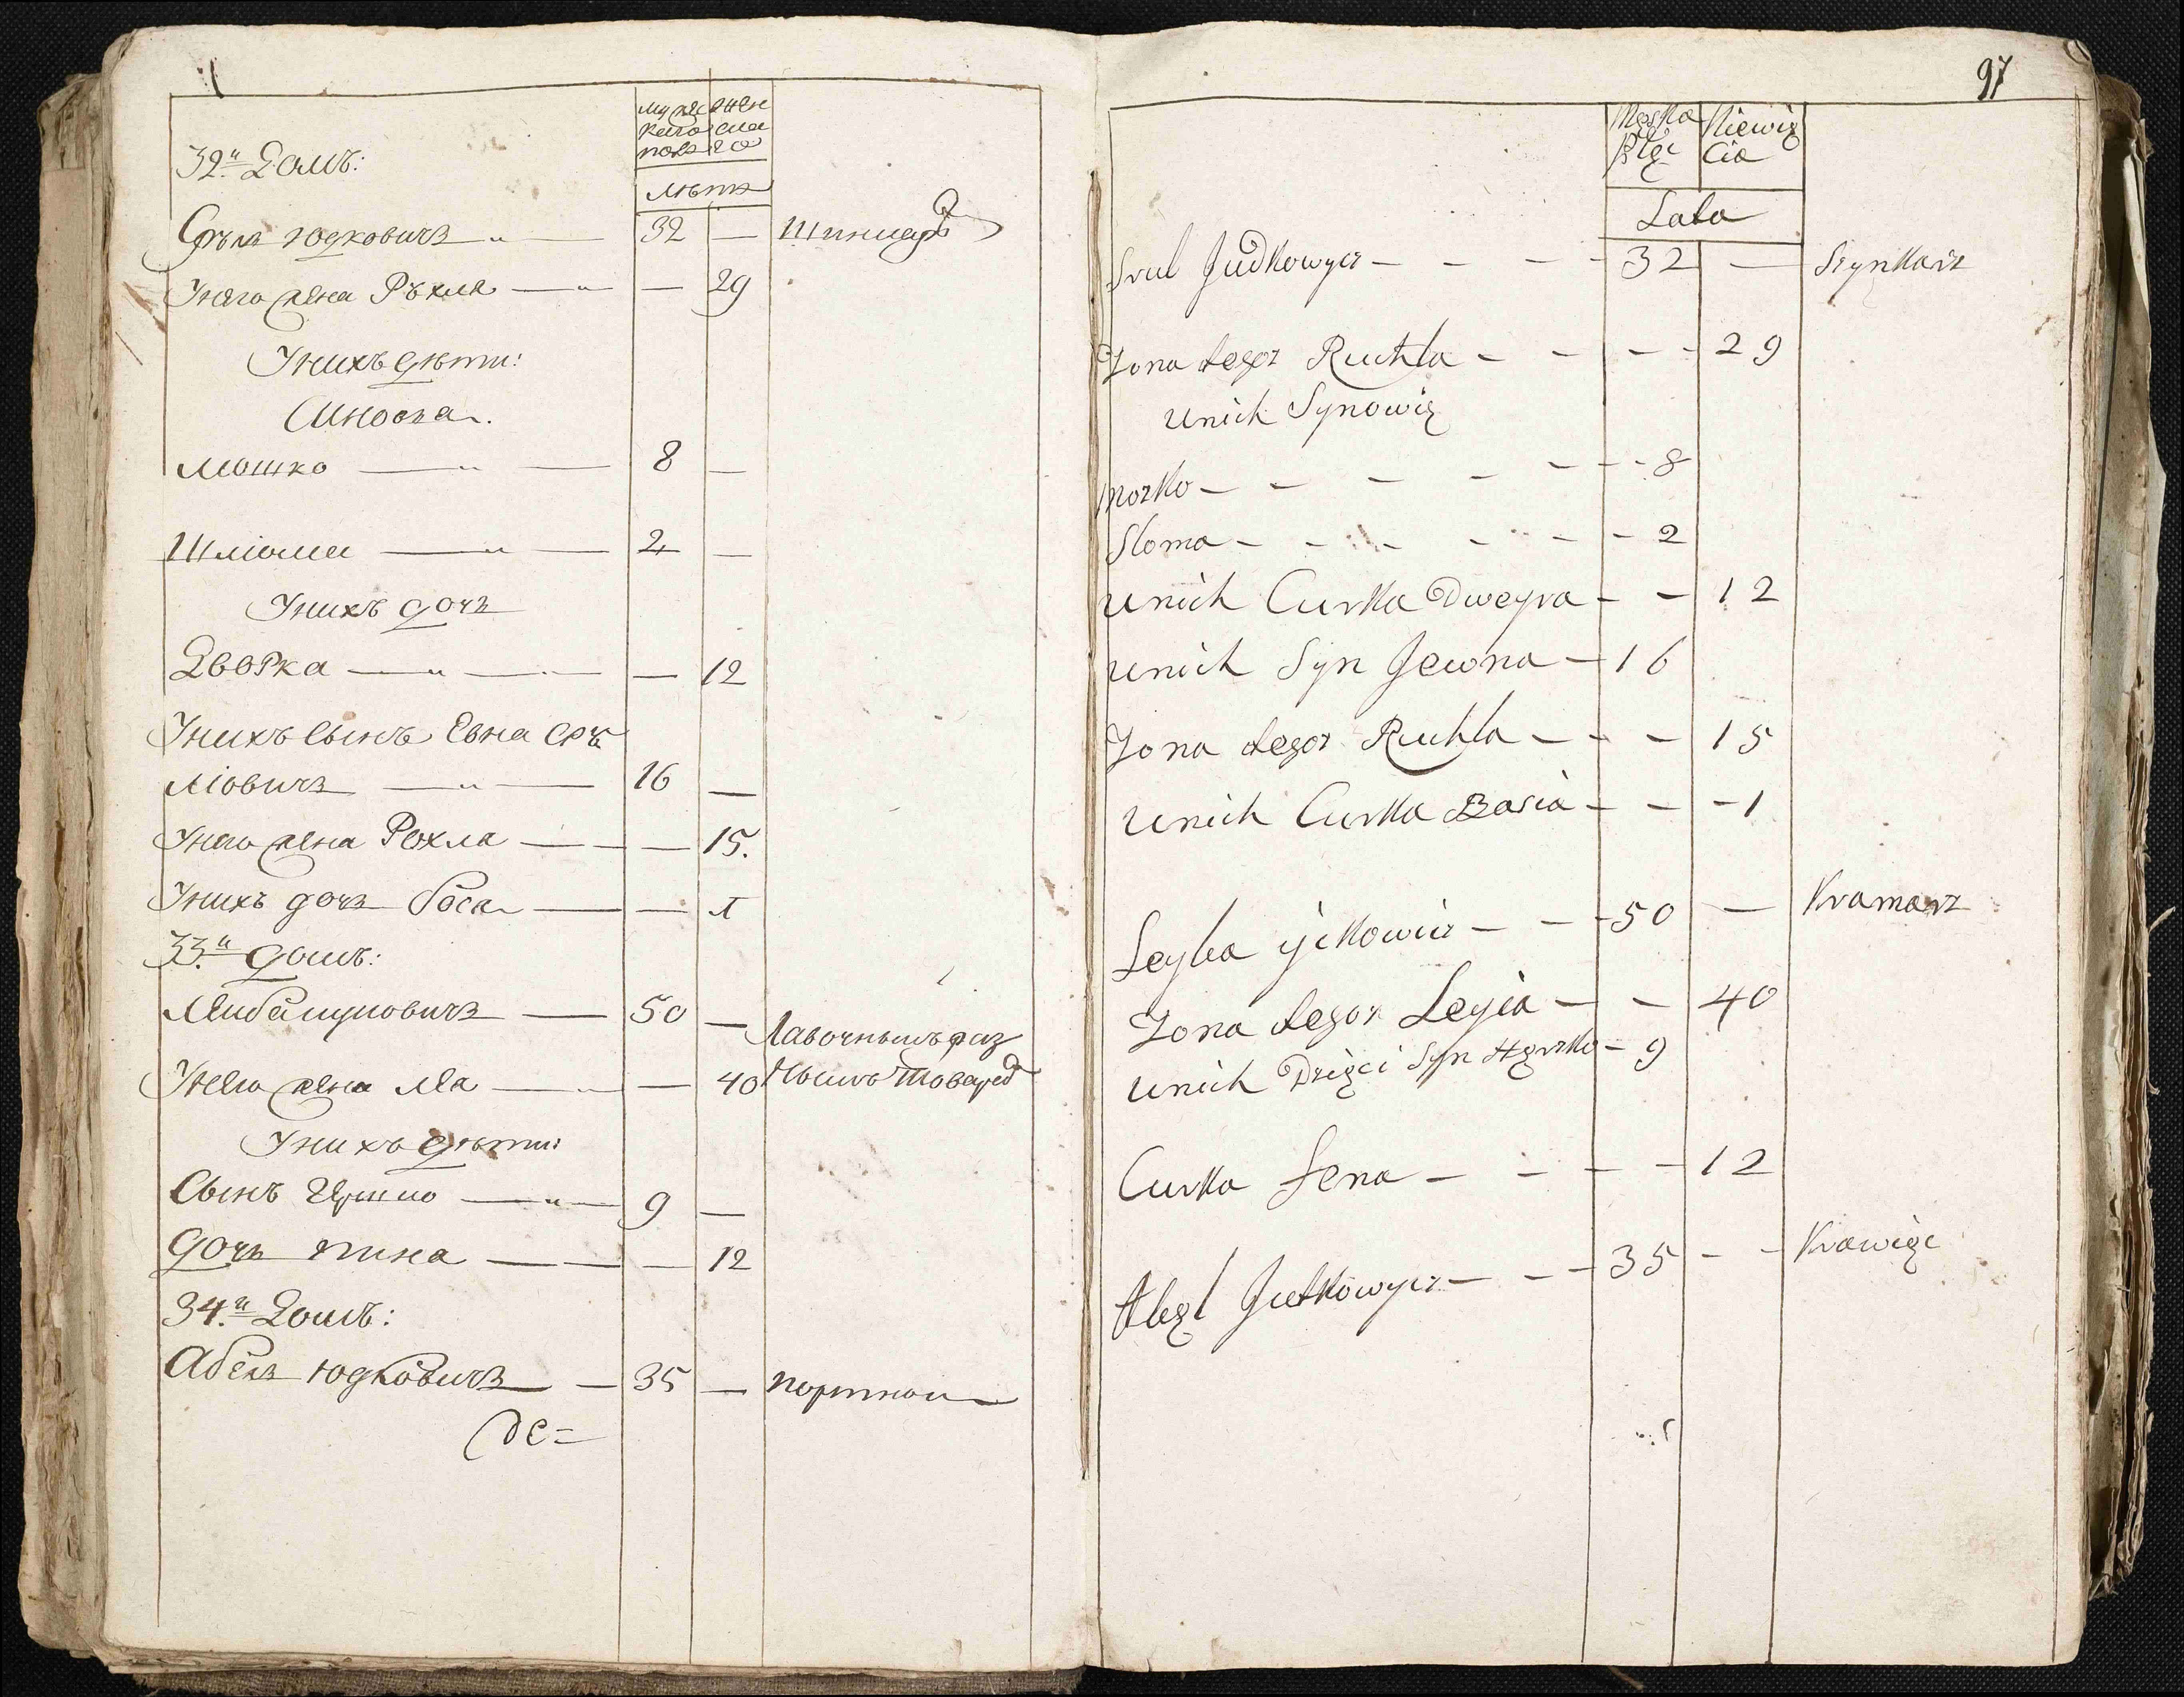 32.й Домъ:
мужескаго пола
женскаго
лѣта
Сруль Юдковичъ — 32 — Шинкаръ
У него жена Рухля — — 29
У нихъ дѣти:
Мошко — 8 —
Шліома — 2 —
У нихъ дочь
Дворка — — 12
У нихъ сынъ Евна Сру
ліовичъ — 16 —
У него жена Рохла — — 15.
У нихъ дочь Бася — — 1
33.й домъ:
50 — Лавочнымъ раз
У него жена Лея — — 40 нымъ товаромъ
У нихъ дѣти:
Сынъ Гершко — 9 —
дочь — — 12
34.й Домъ:
Абель Юдковичъ — 35 — портной
97
Męska Płeć
Niewieścia
Lata
Srul Judkowycz - - - - 32 — Szynkarz
Zona tegoz Ruchla - - - - 29
unich Synowie
Moszko - - - - - - 8
Sloma - - - - - - 2
unich Curka Dweyra - - 12
unich Syn Jewna - 16
Zona tegoz Ruchla - - - 15
unich Curka Basia - - - 1
Leyba ickowicz - - - 50 — Kramarz
Zona tegoz Leyia - - 40
unich Dzieci Syn Herszko - 9
Curka Sena - - - - 12
Abel Jutkowycz - - - 35 - - Krawiec